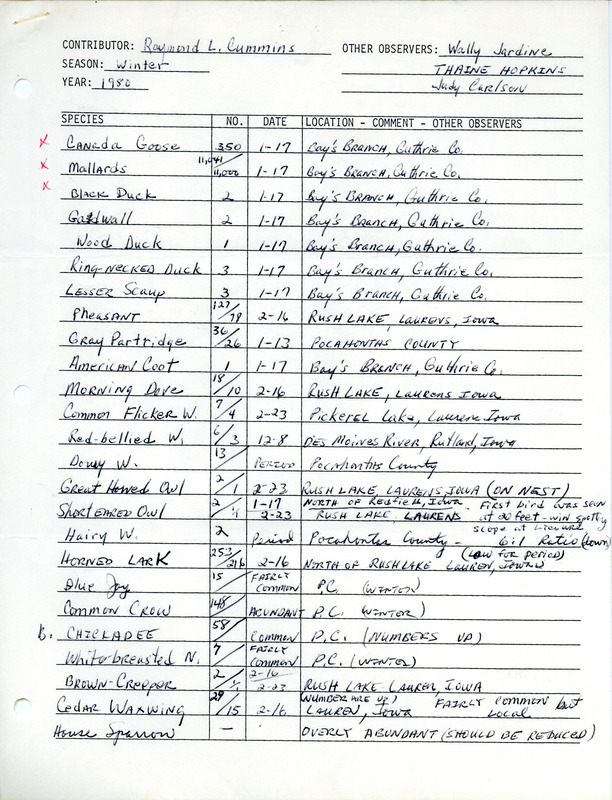 CONTRIBUTOR: Raymond L. Cummins OTHER OBSERVERS: Wally Jardine
SEASON: Winter THAINE HOPKINS
YEAR: 1980 Judy Carlson
SPECIES NO. DATE LOCATION - COMMENT - OTHER OBSERVERS
x CANADA GOOSE 350 1-17 Bay's BRANCH, Guthrie Co.
x Mallards 11,041/11,000 1-17 Bay's BRANCH, Guthrie Co.
x BLACK DUCK 2 1-17 Bay's BRANCH, Guthrie Co.
Gadwall 2 1-17 Bay's BRANCH, Guthrie Co.
Wood Duck 1 1-17 Bay's Branch, Guthrie Co.
Ring-necked Duck 3 1-17 Bay's Branch, Guthrie Co.
LESSER Scaup 3 1-17 Bay's Branch, Guthrie Co.
PHEASANT 127/78 2-16 RUSH LAKE, LAURENS, Iowa
Gray Partridge 36/26 1-13 POCAHONTAS COUNTY
American Coot 1 1-17 Bay's BRANCH, Guthrie Co.
MORNING Dove 18/10 2-16 RUSH LAKE, LAURENS Iowa
Common Flicker W. 7/4 2-23 Pickerel Lake, Laurens Iowa
Red-bellied W. 6/3 12-8 DES Moines River, Rutland, Iowa
Downy W. 13/ PERIOD Pocahontas County
Great Horned Owl 2/1 2-23 RUSH LAKE, LAURENS, IOWA (ON NEST)
Short EARED Owl 2/1 1-17 NORTH OF Redfield, Iowa. First bird was seen
2-23 RUSH LAKE, LAURENS at 20 feet - spotting
scope at
Hairy W. 2 Period Pocahontas County - 6:1 Ratio (down)
(Low for period)
HORNED LARK 253/216 2-16 NORTH OF RUSH LAKE LAUREN, Iowa
Blue Jay 15/ FAIRLY COMMON P.C. (WINTER)
Common Crow 148/ ABUNDANT P.C. (WINTER)
B. CHICKADEE 58/ COMMON P.C. (NUMBERS UP)
White-breasted N. 7/ FAIRLY COMMON P.C. (WINTER)
BROWN-CREEPER 2/1 2-16 2-23 RUSH LAKE LAUREN, IOWA
CEDAR WAXWING 29/15 2-16 (NUMBER ARE UP) LAUREN, IOWA FAIRLY COMMON but Local
House Sparrow - OVERLY ABUNDANT (SHOULD BE REDUCED)